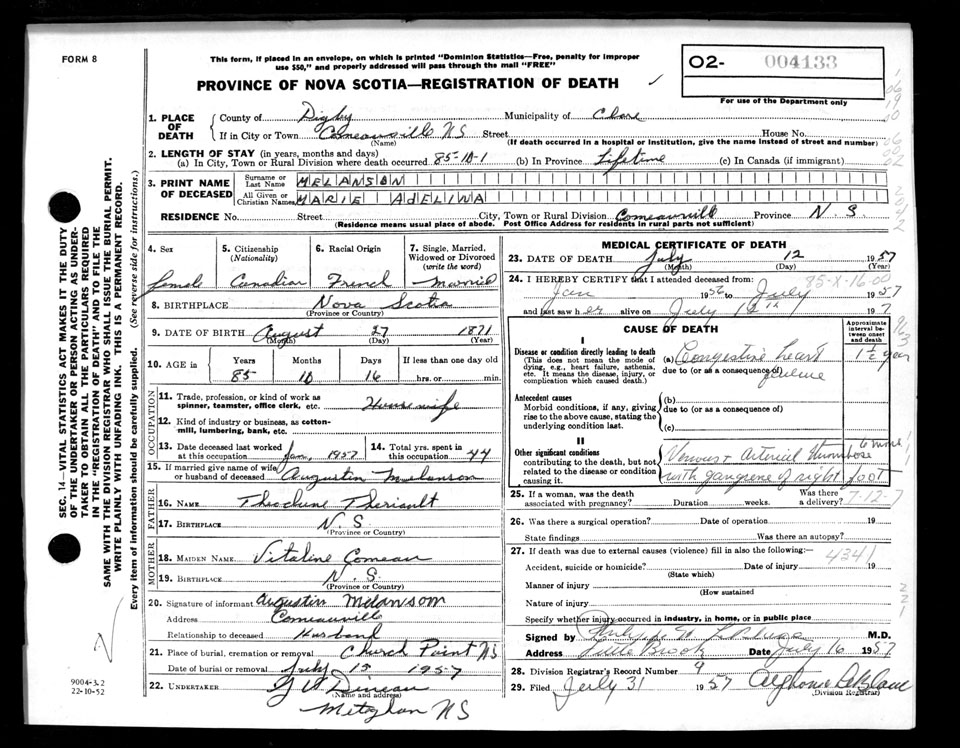 FORM 8
This form, if placed in an envelope, on which is printed "Dominion Statistics—Free, penalty for improper
use $50," and properly addressed will pass through the mail "FREE"
PROVINCE OF NOVA SCOTIA—REGISTRATION OF DEATH
O2- 004133
For use of the Department only
1. PLACE OF DEATH
County of Digby Municipality of Clare
If in City or Town Comeauville NS Street House No.
(Name) (If death occurred in a hospital or institution, give the name instead of street and number)
2. LENGTH OF STAY (in years, months and days)
(a) In City, Town or Rural Division where death occurred 85-10-1 (b) In Province Lifetime (c) In Canada (if immigrant)
3. PRINT NAME OF DECEASED
Surname or Last Name MELANSON
All Given or Christian Names MARIE AdELINA
RESIDENCE No. Street City, Town or Rural Division Comeauville Province N. S.
(Residence means usual place of abode. Post Office Address for residents in rural parts not sufficient)
4. Sex female
5. Citizenship (Nationality) Canadian
6. Racial Origin French
7. Single, Married, Widowed or Divorced (write the word) Married
8. BIRTHPLACE Nova Scotia
(Province or Country)
9. DATE OF BIRTH August 27 1871
(Month) (Day) (Year)
10. AGE in Years Months Days If less than one day old
85 10 16 hrs. or min.
OCCUPATION
11. Trade, profession, or kind of work as spinner, teamster, office clerk, etc. Housewife
12. Kind of industry or business, as cotton-mill, lumbering, bank, etc.
13. Date deceased last worked at this occupation Jan, 1957
14. Total yrs. spent in this occupation 44
15. If married give name of wife or husband of deceased Augustin Melanson
FATHER
16. NAME Theriault
17. BIRTHPLACE N. S
(Province or Country)
MOTHER
18. MAIDEN NAME Vitaline Comeau
19. BIRTHPLACE N. S.
(Province or Country)
20. Signature of informant Augustin Melanson
Address Comeauville
Relationship to deceased Husband
21. Place of burial, cremation or removal Church Point NS
Date of burial or removal July 15 1957
22. UNDERTAKER
(Name and address)
Meteghan NS
MEDICAL CERTIFICATE OF DEATH
23. DATE OF DEATH July 12 1957
(Month) (Day) (Year)
24. I HEREBY CERTIFY that I attended deceased from: 85-X-16-00
Jan 1956 to July 1957
and last saw her alive on July 12th 1957
CAUSE OF DEATH
Approximate interval between onset and death
I
Disease or condition directly leading to death
(This does not mean the mode of dying, e.g., heart failure, asthenia, etc. It means the disease, injury, or complication which caused death.)
(a) Congestive heart failure 1½ year
due to (or as a consequence of)
Antecedent causes
Morbid conditions, if any, giving rise to the above cause, stating the underlying condition last.
(b)
due to (or as a consequence of)
(c)
II
Other significant conditions
contributing to the death, but not related to the disease or condition causing it.
Venous & Arterial thrombose 6 mos
with gangrene of right foot
25. If a woman, was the death associated with pregnancy? Duration weeks. Was there a delivery? 7-12-7
26. Was there a surgical operation? Date of operation 19
State findings Was there an autopsy?
27. If death was due to external causes (violence) fill in also the following:— 4341
Accident, suicide or homicide? Date of injury 19
(State which)
Manner of injury
(How sustained
Nature of injury
Specify whether injury occurred in industry, in home, or in public place
Signed by M.D.
Address Little Brook Date July 16 1957
28. Division Registrar's Record Number 9
29. Filed July 31 1957 Alphonse LeBlanc
(Division Registrar)
SEC. 14—VITAL STATISTICS ACT MAKES IT THE DUTY
OF THE UNDERTAKER OR PERSON ACTING AS UNDER-
TAKER TO OBTAIN ALL THE PARTICULARS REQUIRED
IN THE "REGISTRATION OF DEATH" AND TO FILE THE
SAME WITH THE DIVISION REGISTRAR WHO SHALL ISSUE THE BURIAL PERMIT.
WRITE PLAINLY WITH UNFADING INK. THIS IS A PERMANENT RECORD.
Every item of information should be carefully supplied. (See reverse side for instructions.)
9004-3.2
22-10-52